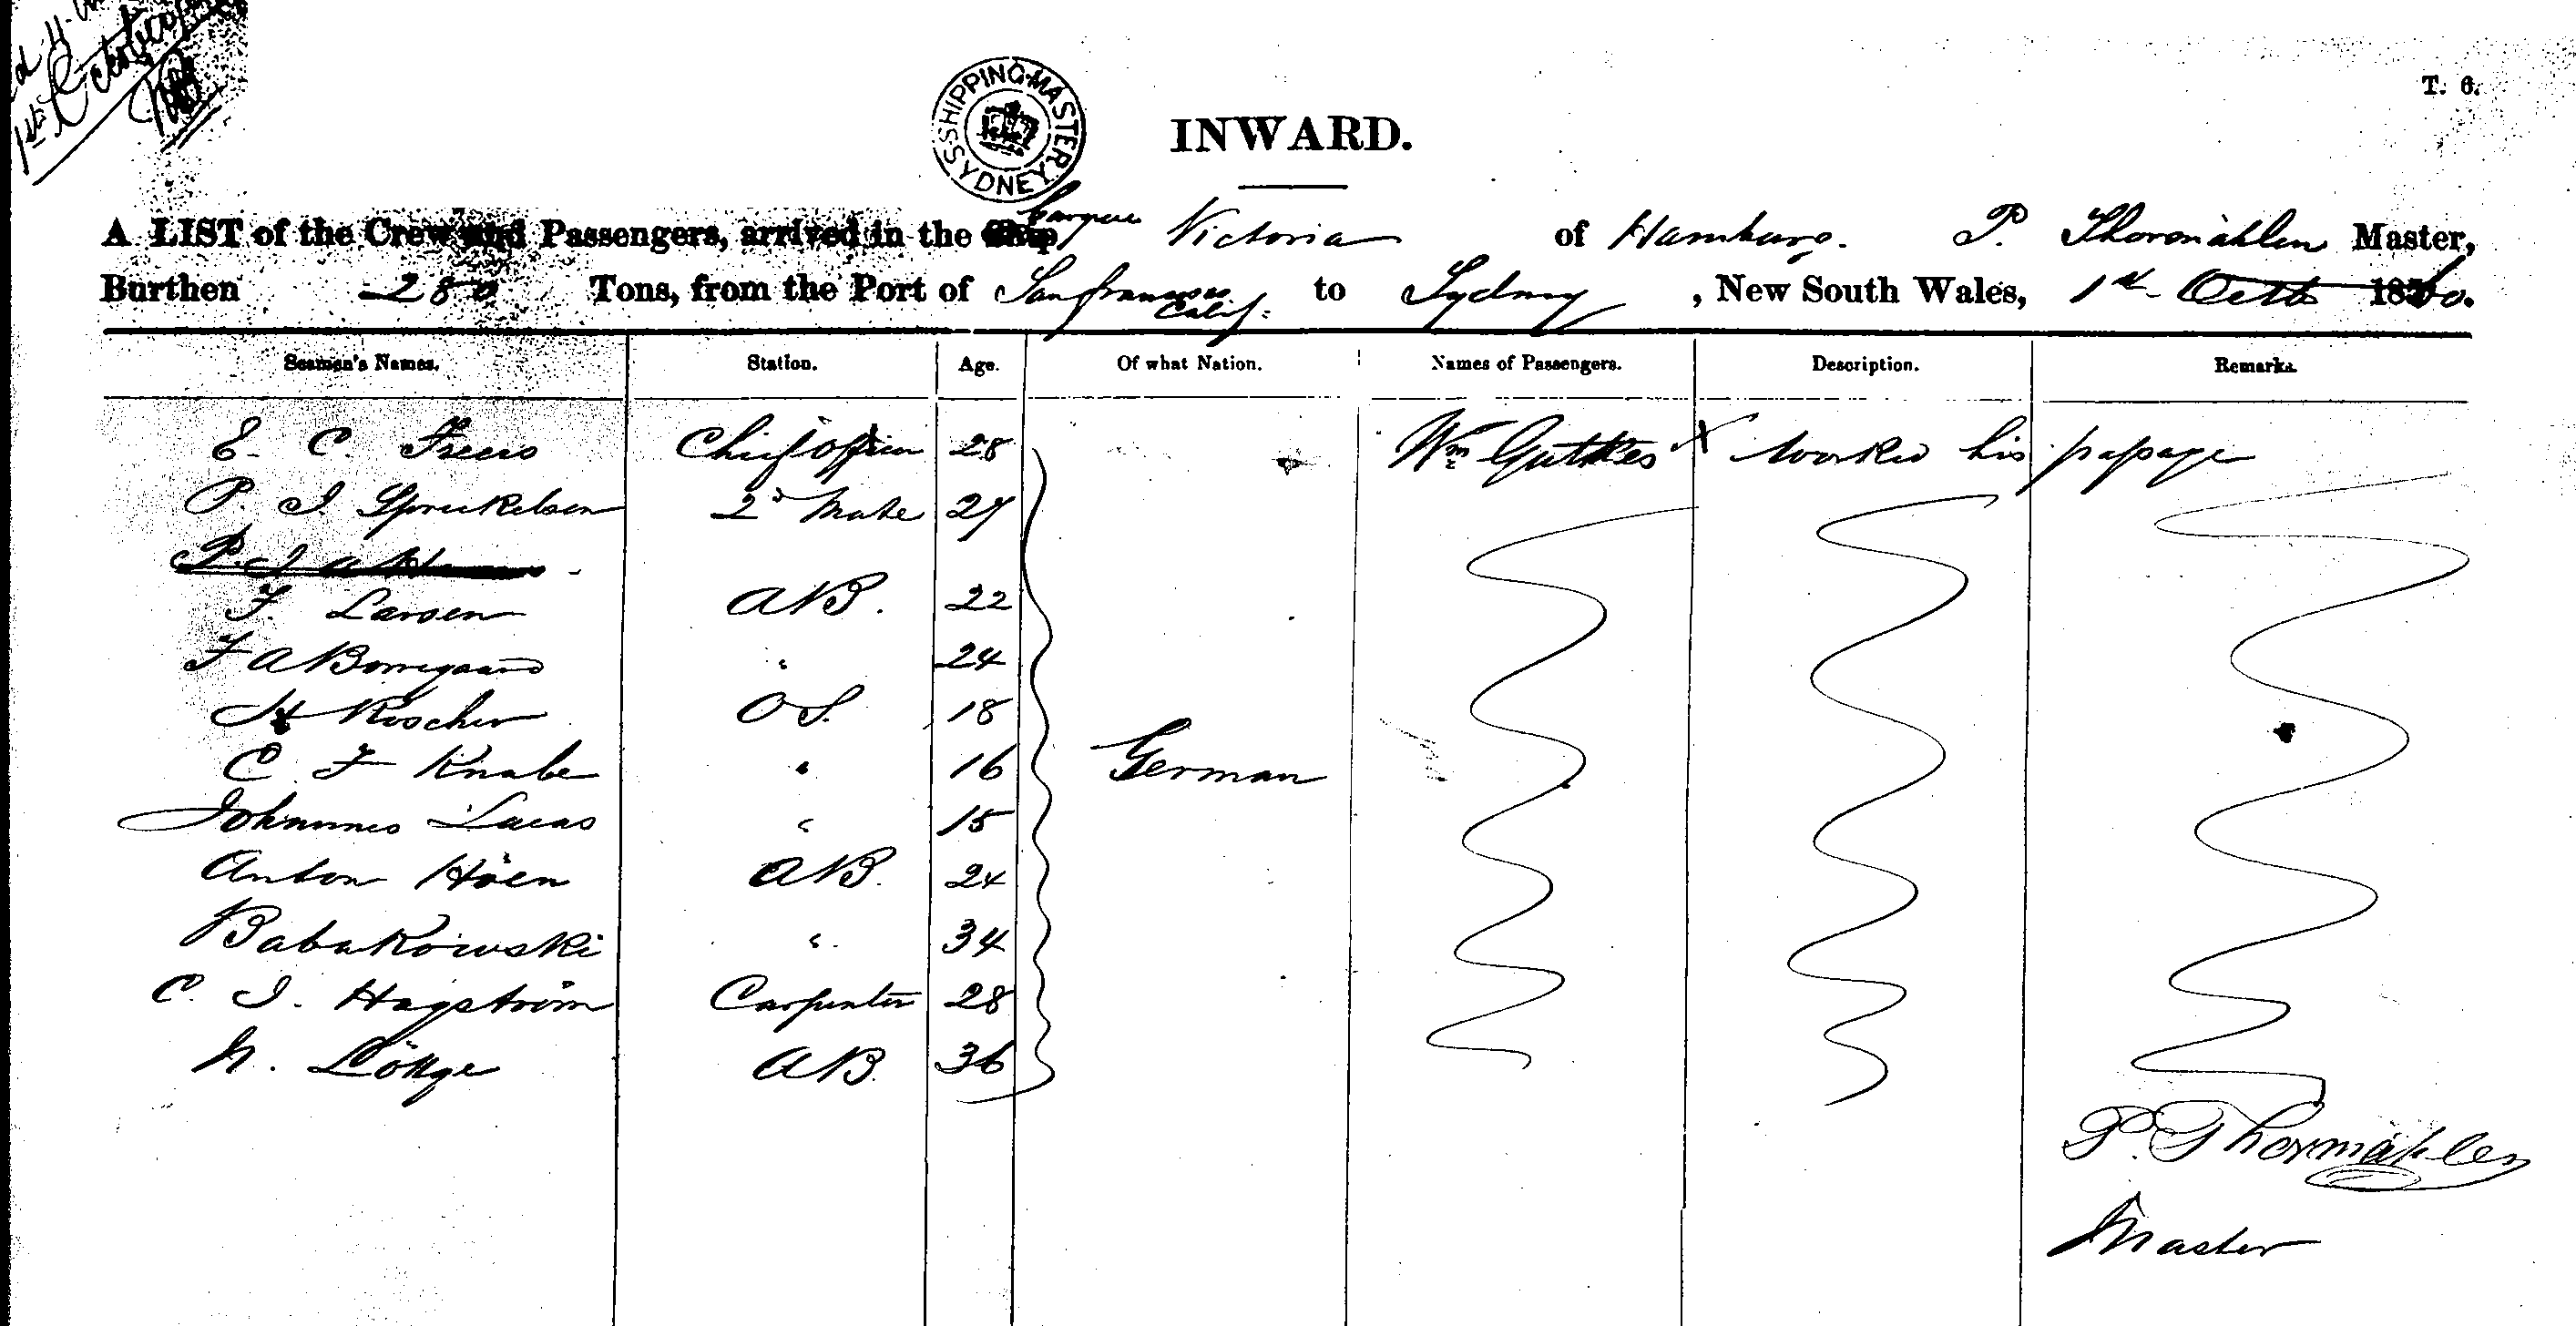 1st October
SHIPPING MASTER
SYDNEY
T. 6.
INWARD.
A LIST of the Crew and Passengers, arrived in the Ship Barque Victoria of Hamburg. P. Thormählen Master,
Burthen 280 Tons, from the Port of San francisco Calif: to Sydney, New South Wales, 1st Octb 1860.
Seamen's Names. Station. Age. Of what Nation. Names of Passengers. Description. Remarks.
E. C. Chief Officer 28 Wm Guthkes X Worked his passage
P. J. Spreckelsen 2d Mate 27
F. Larsen AB. 22
F A Borregaard " 24
H Roscher OS. 18
C F Knabe " 16 German
Johannes Lucas " 15
Anton Höen AB. 24
Babakowski " 34
C. J. Hagström Carpenter 28
N. AB. 36
P. Thormählen
Master